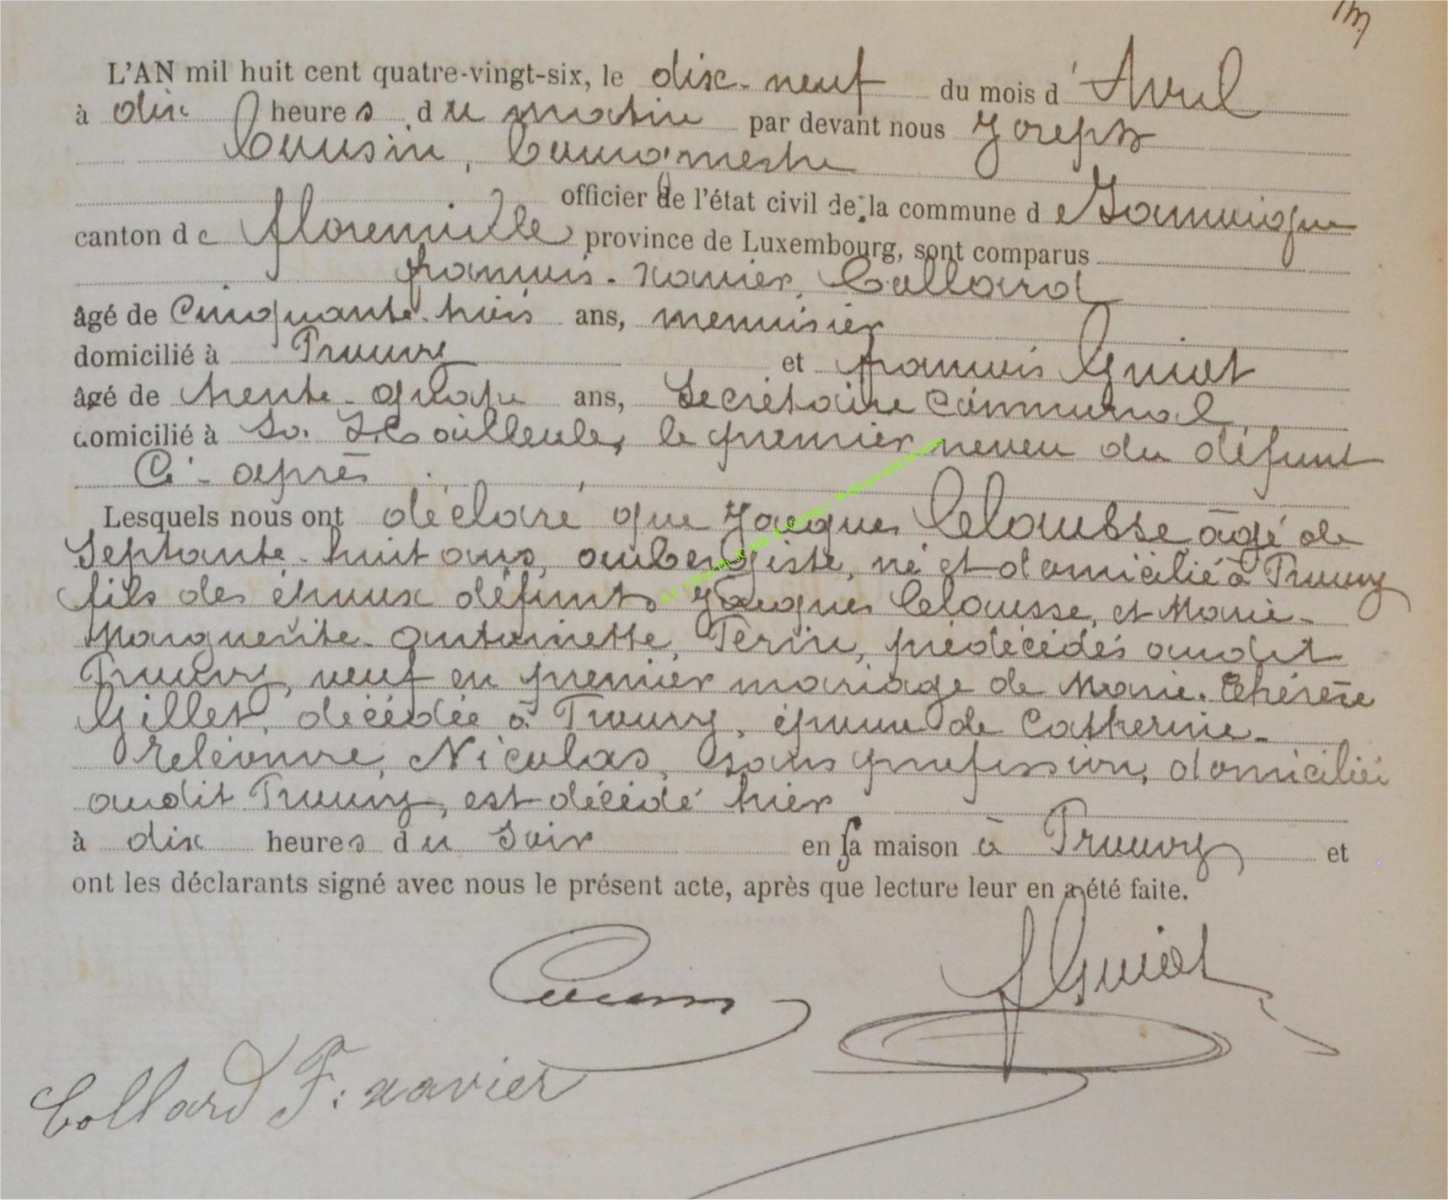 L'AN mil huit cent quatre-vingt-six, le dix-neuf du mois d'Avril
à dix heures du matin par devant nous Joseph
Cousin, bourgmestre
officier de l'état civil de la commune de Jamoigne
canton de florenville province de Luxembourg, sont comparus
françois-Xavier Collard
âgé de Cinquante-trois ans, menuisier
domicilié à Prouvy et françois Guiot
âgé de trente-quatre ans, Secrétaire Communal
domicilié à le premier neveu du défunt
Ci-après
Lesquels nous ont déclaré que Jacques Clausse âgé de
Septante-huit ans, aubergiste, né et domicilié à Prouvy
fils des époux défunts Jacques Clausse, et Marie-
Marguerite-Antoinette, prédécédés audit
Prouvy, veuf en premier mariage de Marie-Thérèse
Gillet, décédée à Prouvy, époux de Catherine-
Nicolas, sans profession, domiciliée
audit Prouvy, est décédé hier
à dix heures du Soir en sa maison à Prouvy et
ont les déclarants signé avec nous le présent acte, après que lecture leur en a été faite.
Cousin
f Guiot
Collard F: xavier